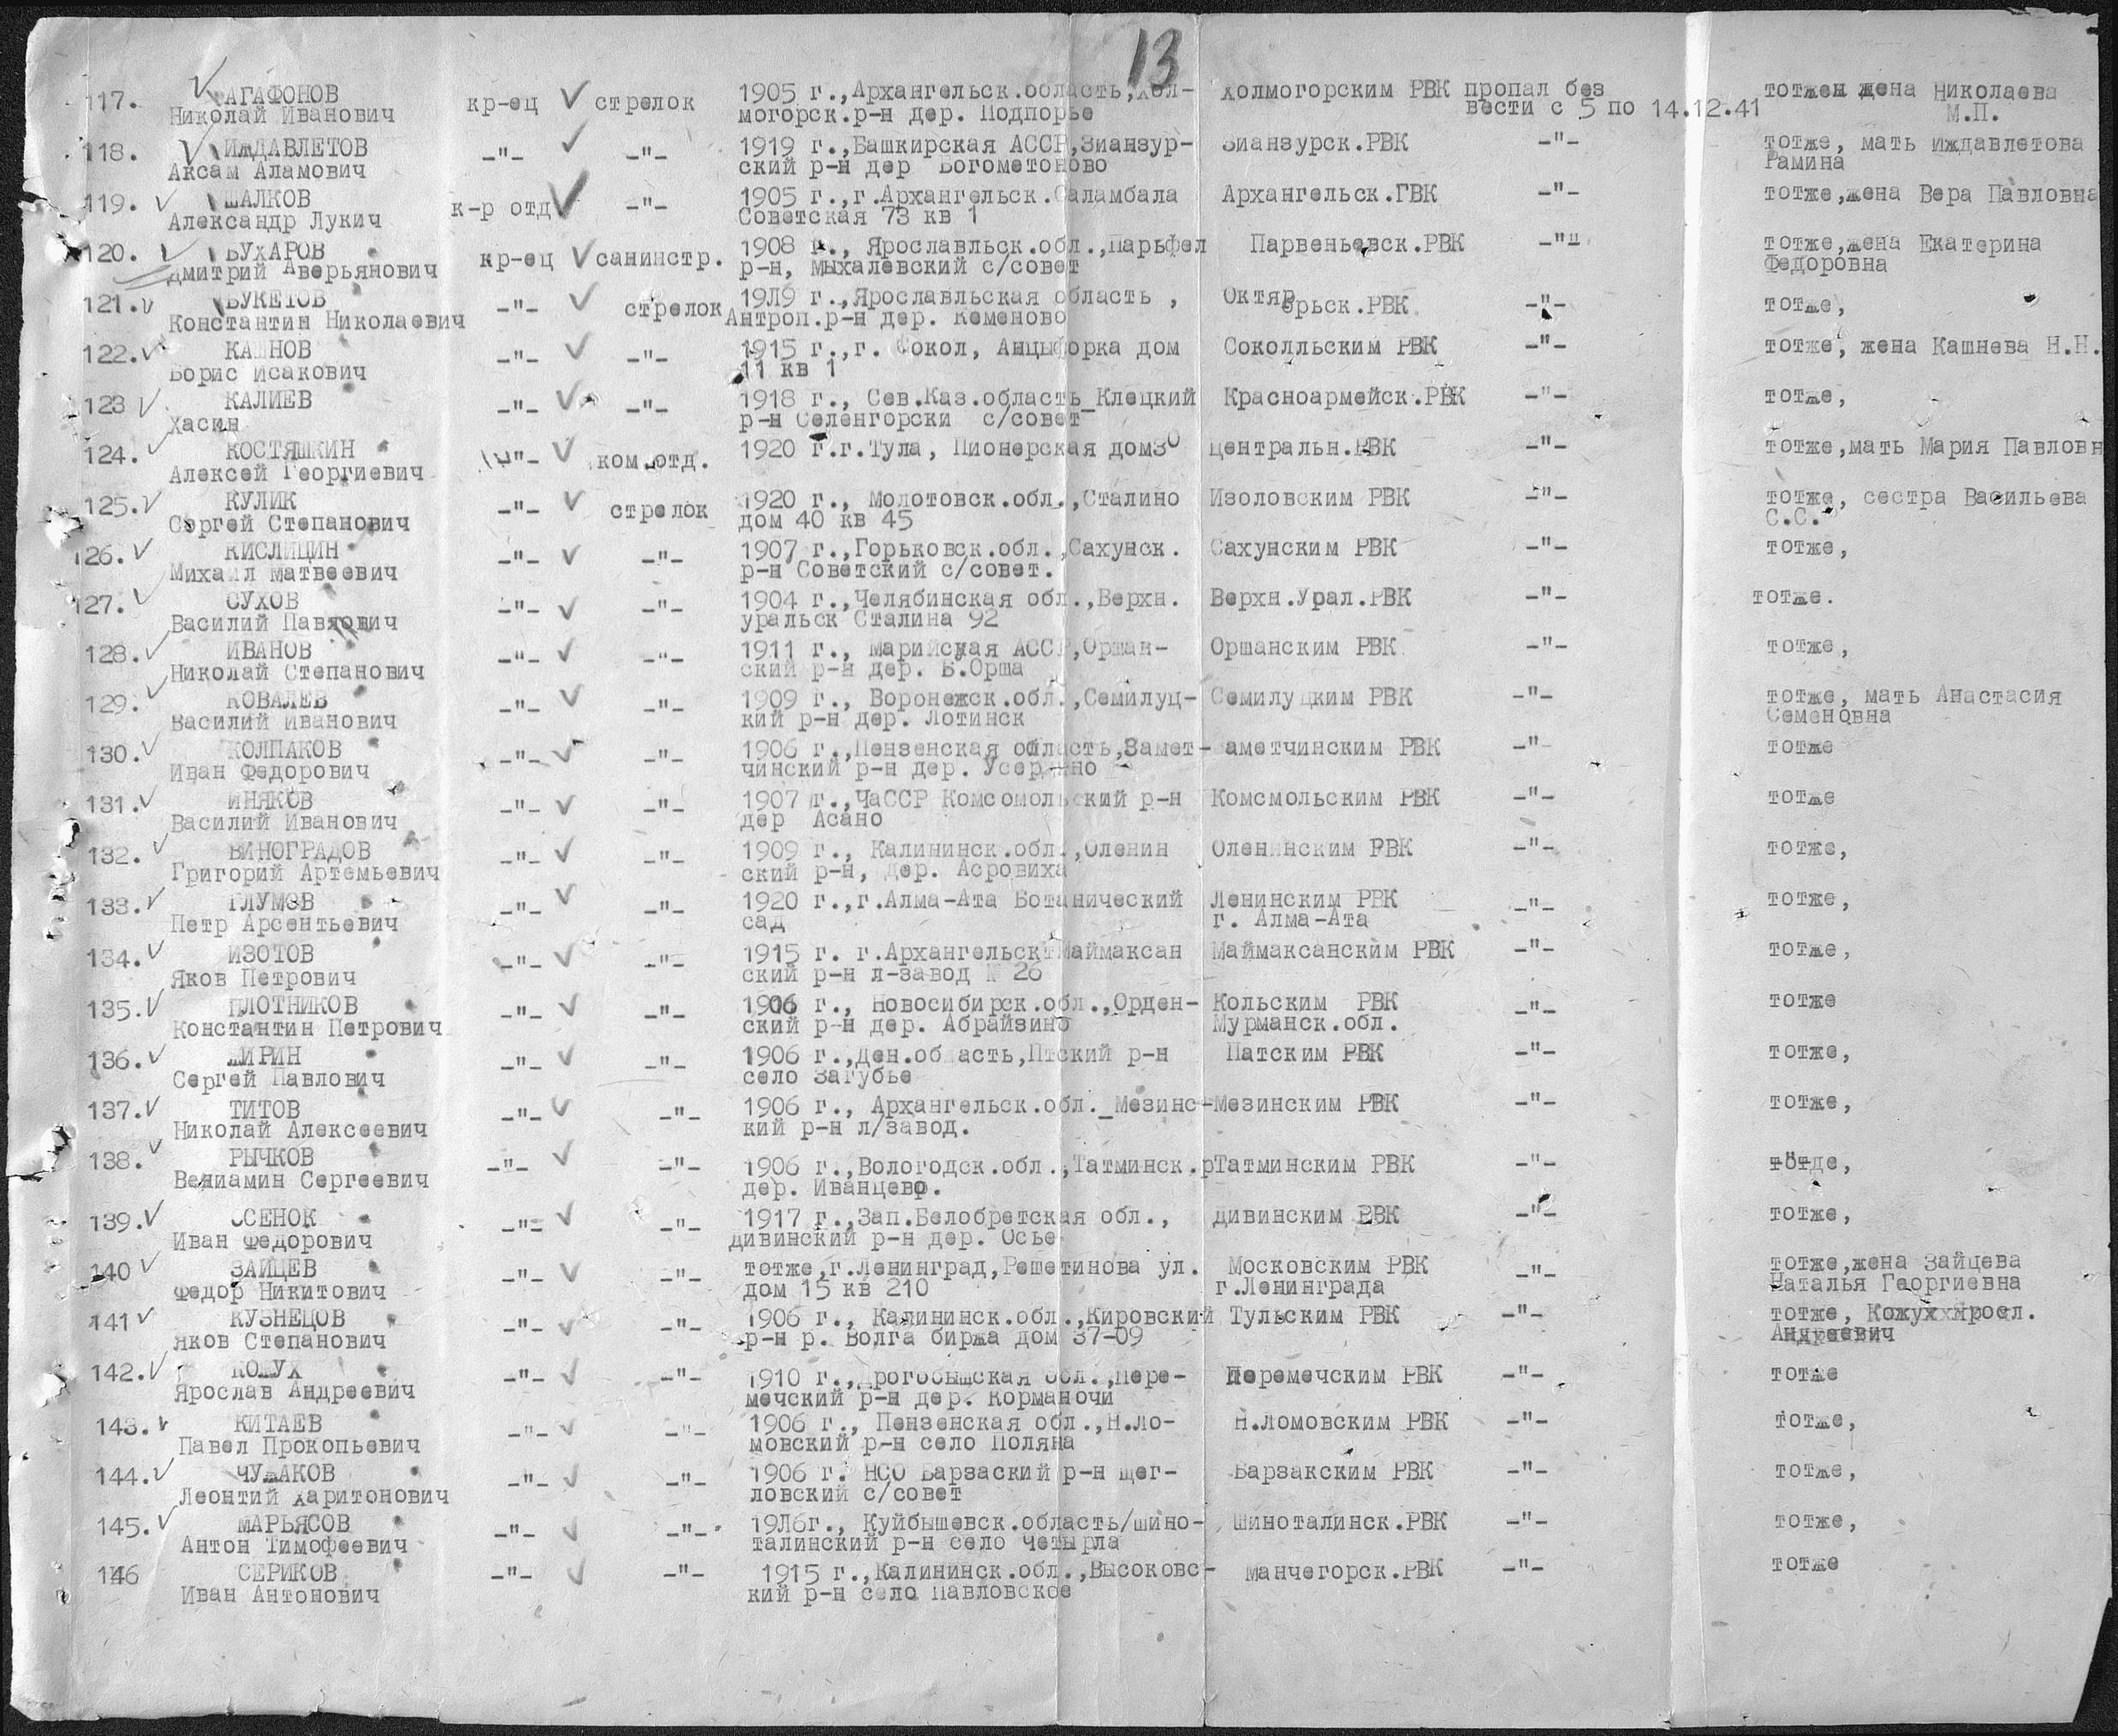 13
117. АГАФОНОВ кр-ец стрелок 1905 г.,Архангельск.область,Хол- Холмогорским РВК пропал без тотжен жена Николаева
Николай Иванович могорск.р-н дер. Подпорье вести с 5 по 14.12.41 М.П.
118. ИЖДАВЛЕТОВ -"- -"- 1919 г.,Башкирская АССР,Зианзур- Зианзурск.РВК -"- тотже, мать Иждавлетова
Аксам Аламович ский р-н дер Богометоново Рамина
119. ШАЛКОВ к-р отд -"- 1905 г.,г.Архангельск.Саламбала Архангельск.ГВК -"- тотже,жена Вера Павловна
Александр Лукич Советская 73 кв 1
120. БУХАРОВ кр-ец санинстр. 1908 г., Ярославльск.обл.,Парьфел Парвеньевск.РВК -"- тотже,жена Екатерина
Дмитрий Аверьянович р-н, Мыхалевский с/совет Федоровна
121. БУКЕТОВ -"- стрелок 19Л9 г.,Ярославльская область , Октяр -"- тотже,
Константин Николаевич Антроп.р-н дер. Кеменово брьск.РВК
122. КАШНОВ -"- -"- 1915 г.,г. Сокол, Анцыфорка дом Соколльским РВК -"- тотже, жена Кашнева Н.Н.
Борис Исакович 11 кв 1
123 КАЛИЕВ -"- -"- 1918 г., Сев.Каз.область_Клецкий Красноармейск.РВК -"- тотже,
Хасин р-н Селенгорски с/совет
124. КОСТЯШКИН -"- ком.отд. 1920 г.г.Тула, Пионерская дом30 Центральн.РВК -"- тотже,мать Мария Павловн
Алексей Георгиевич
125. КУЛИК -"- стрелок 1920 г., Молотовск.обл.,Сталино Изоловским РВК -"- тотже, сестра Васильева
Сергей Степанович дом 40 кв 45 С.С.
126. КИСЛИЦИН -"- -"- 1907 г.,Горьковск.обл.,Сахунск. Сахунским РВК -"- тотже,
Михаил Матвеевич р-н Советский с/совет.
127. СУХОВ -"- -"- 1904 г.,Челябинская обл.,Верхн. Верхн.Урал.РВК -"- тотже.
Василий Павлович уральск Сталина 92
128. ИВАНОВ -"- -"- 1911 г., Марийская АССР,Оршан- Оршанским РВК -"- тотже,
Николай Степанович ский р-н дер. Б.Орша
129. КОВАЛЕВ -"- -"- 1909 г., Воронежск.обл.,Семилуц- Семилуцким РВК -"- тотже, мать Анастасия
Василий Иванович кий р-н дер. Лотинск Семеновна
130. КОЛПАКОВ -"- -"- 1906 г.,Пензенская область,Замет- аметчинским РВК -"- тотже
Иван Федорович чинский р-н дер.
131. ИНЯКОВ -"- -"- 1907 г.,ЧаССР Комсомольский р-н Комсмольским РВК -"- тотже
Василий Иванович дер Асано
132. ВИНОГРАДОВ -"- -"- 1909 г., Калининск.обл.,Оленин Оленинским РВК -"- тотже,
Григорий Артемьевич ский р-н, дер. Асровиха
133. ГЛУМОВ -"- -"- 1920 г.,г.Алма-Ата Ботанический Ленинским РВК -"- тотже,
Петр Арсентьевич сад г. Алма-Ата
134. ИЗОТОВ -"- -"- 1915 г. г.Архангельск Маймаксан Маймаксанским РВК -"- тотже,
Яков Петрович ский р-н л-завод № 26
135. ПЛОТНИКОВ -"- -"- 1906 г., Новосибирск.обл.,Орден- Кольским РВК -"- тотже
Константин Петрович ский р-н дер. Абрайзино Мурманск.обл.
136. ШИРИН -"- -"- 1906 г.,Ден.область,Птский р-н Патским РВК -"- тотже,
Сергей Павлович село Загубье
137. ТИТОВ -"- -"- 1906 г., Архангельск.обл._Мезинс- Мезинским РВК -"- тотже,
Николай Алексеевич кий р-н л/завод.
138. РЫЧКОВ -"- -"- 1906 г.,Вологодск.обл.,Татминск.р Татминским РВК -"- тотде,
Вениамин Сергеевич дер. Иванцево.
139. ОСЕНОК -"- -"- 1917 г.,Зап.Белобретская обл., Дивинским РВК -"- тотже,
Иван Федорович дивинский р-н дер. Осье
140 ЗАЙЦЕВ -"- -"- тотже,г.Ленинград,Решетинова ул. Московским РВК -"- тотже,жена Зайцева
Федор Никитович дом 15 кв 210 г.Ленинграда Наталья Георгиевна
141 КУЗНЕЦОВ -"- -"- 1906 г., Калининск.обл.,Кировский Тульским РВК -"- тотже, Кожуххяросл.
Яков Степанович р-н р. Волга биржа дом 37-09 Андреевич
142. КОЖУХ -"- -"- 1910 г.,Дрогобышская обл.,Пере- Перемечским РВК -"- тотже
Ярослав Андреевич мечский р-н дер. Корманочи
143. КИТАЕВ -"- -"- 1906 г., Пензенская обл.,Н.Ло- Н.Ломовским РВК -"- тотже,
Павел Прокопьевич мовский р-н село Поляна
144. ЧУЖАКОВ -"- -"- 1906 г. НСО Барзаский р-н Щег- Барзакским РВК -"- тотже,
Леонтий Харитонович ловский с/совет
145. МАРЬЯСОВ -"- -"- 19Л6г., Куйбышевск.область/шино- Шиноталинск.РВК -"- тотже,
Антон Тимофеевич талинский р-н село Четырла
146 СЕРИКОВ -"- -"- 1915 г.,Калининск.обл.,Высоковс- Манчегорск.РВК -"- тотже
Иван Антонович кий р-н село Павловское